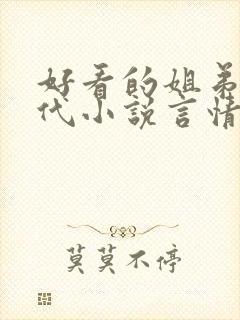 好看的姐弟
代小说言情
莫莫不停